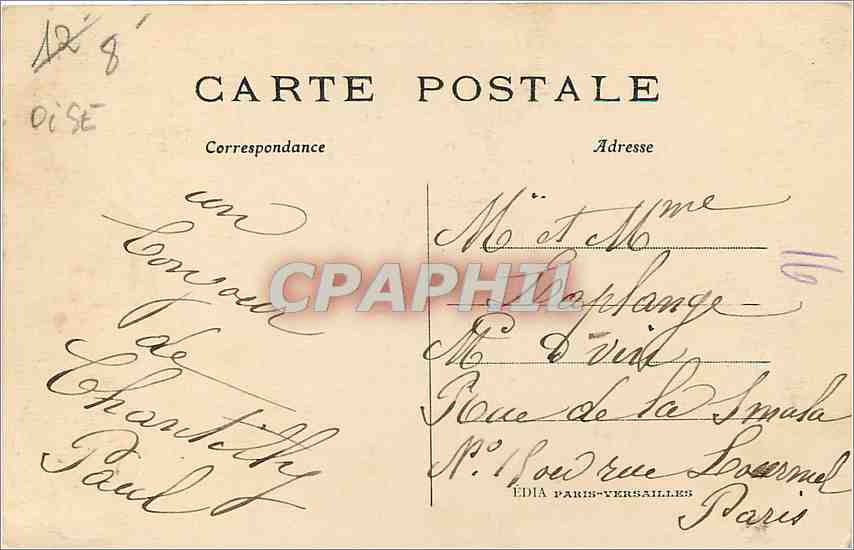 12 8
OiSE
CARTE POSTALE
Correspondance
Adresse
un
bonjour
de
Chantilly
Paul
Mr et Mme
Laplange
Md Vin
Rue de la Smala
No 18 ou rue Lourmel
Paris
16
CPAPHIL
EDIA PARIS-VERSAILLES